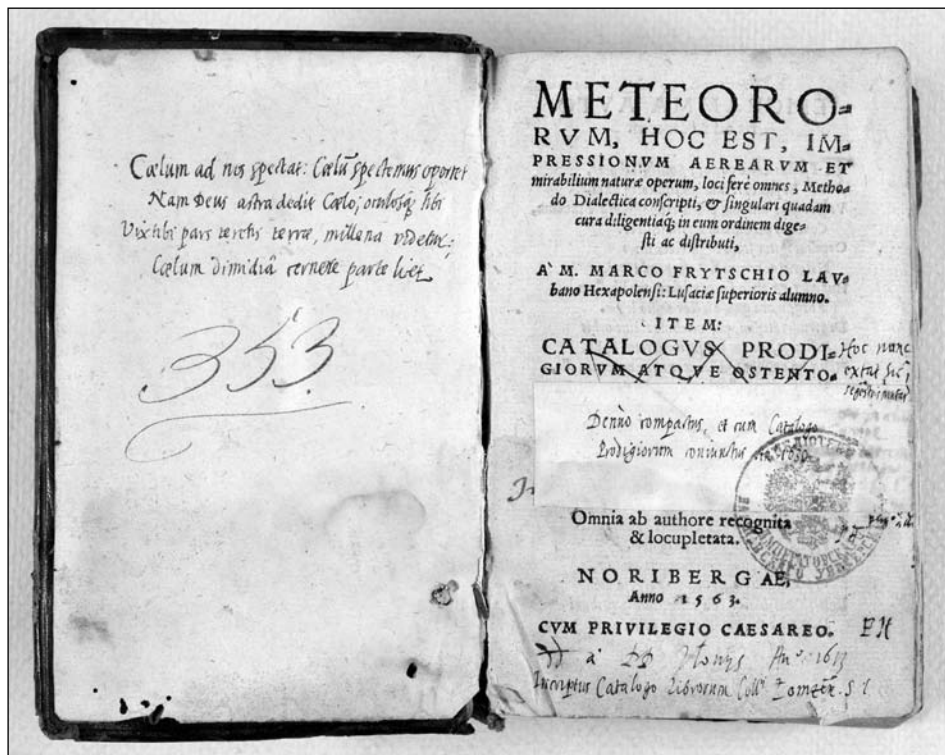 Cœlum ad nos spectat: Cœlū spectemus oportet
Nam Deus astra dedit Cœlo; oculosq; tibi
Vix tibi pars terrę, millena videtur:
Cœlum dimidiâ cernere parte licet
353
METEORO=
RVM, HOC EST, IM=
PRESSIONVM AEREARVM ET
mirabilium naturæ operum, loci ferè omnes, Metho=
do Dialectica conscripti, & singulari quadam
cura diligentiaq́; in eum ordinem dige=
sti ac distributi,
A' M. MARCO FRYTSCHIO LAV=
bano Hexapolensi: Lusaciæ superioris alumno.
ITEM:
CATALOGVS PRODI=
GIORVM ATQVE OSTENTO=
Hoc nunc
extat hic,
Denuò compactus, et cum Catalogo
Prodigiorum coniunctus 1650.
Omnia ab authore recognita
& locupletata.
NORIBERGAE,
Anno 1563.
CVM PRIVILEGIO CAESAREO.
à DD
Inscriptus Catalogo Librorum Coll. S I